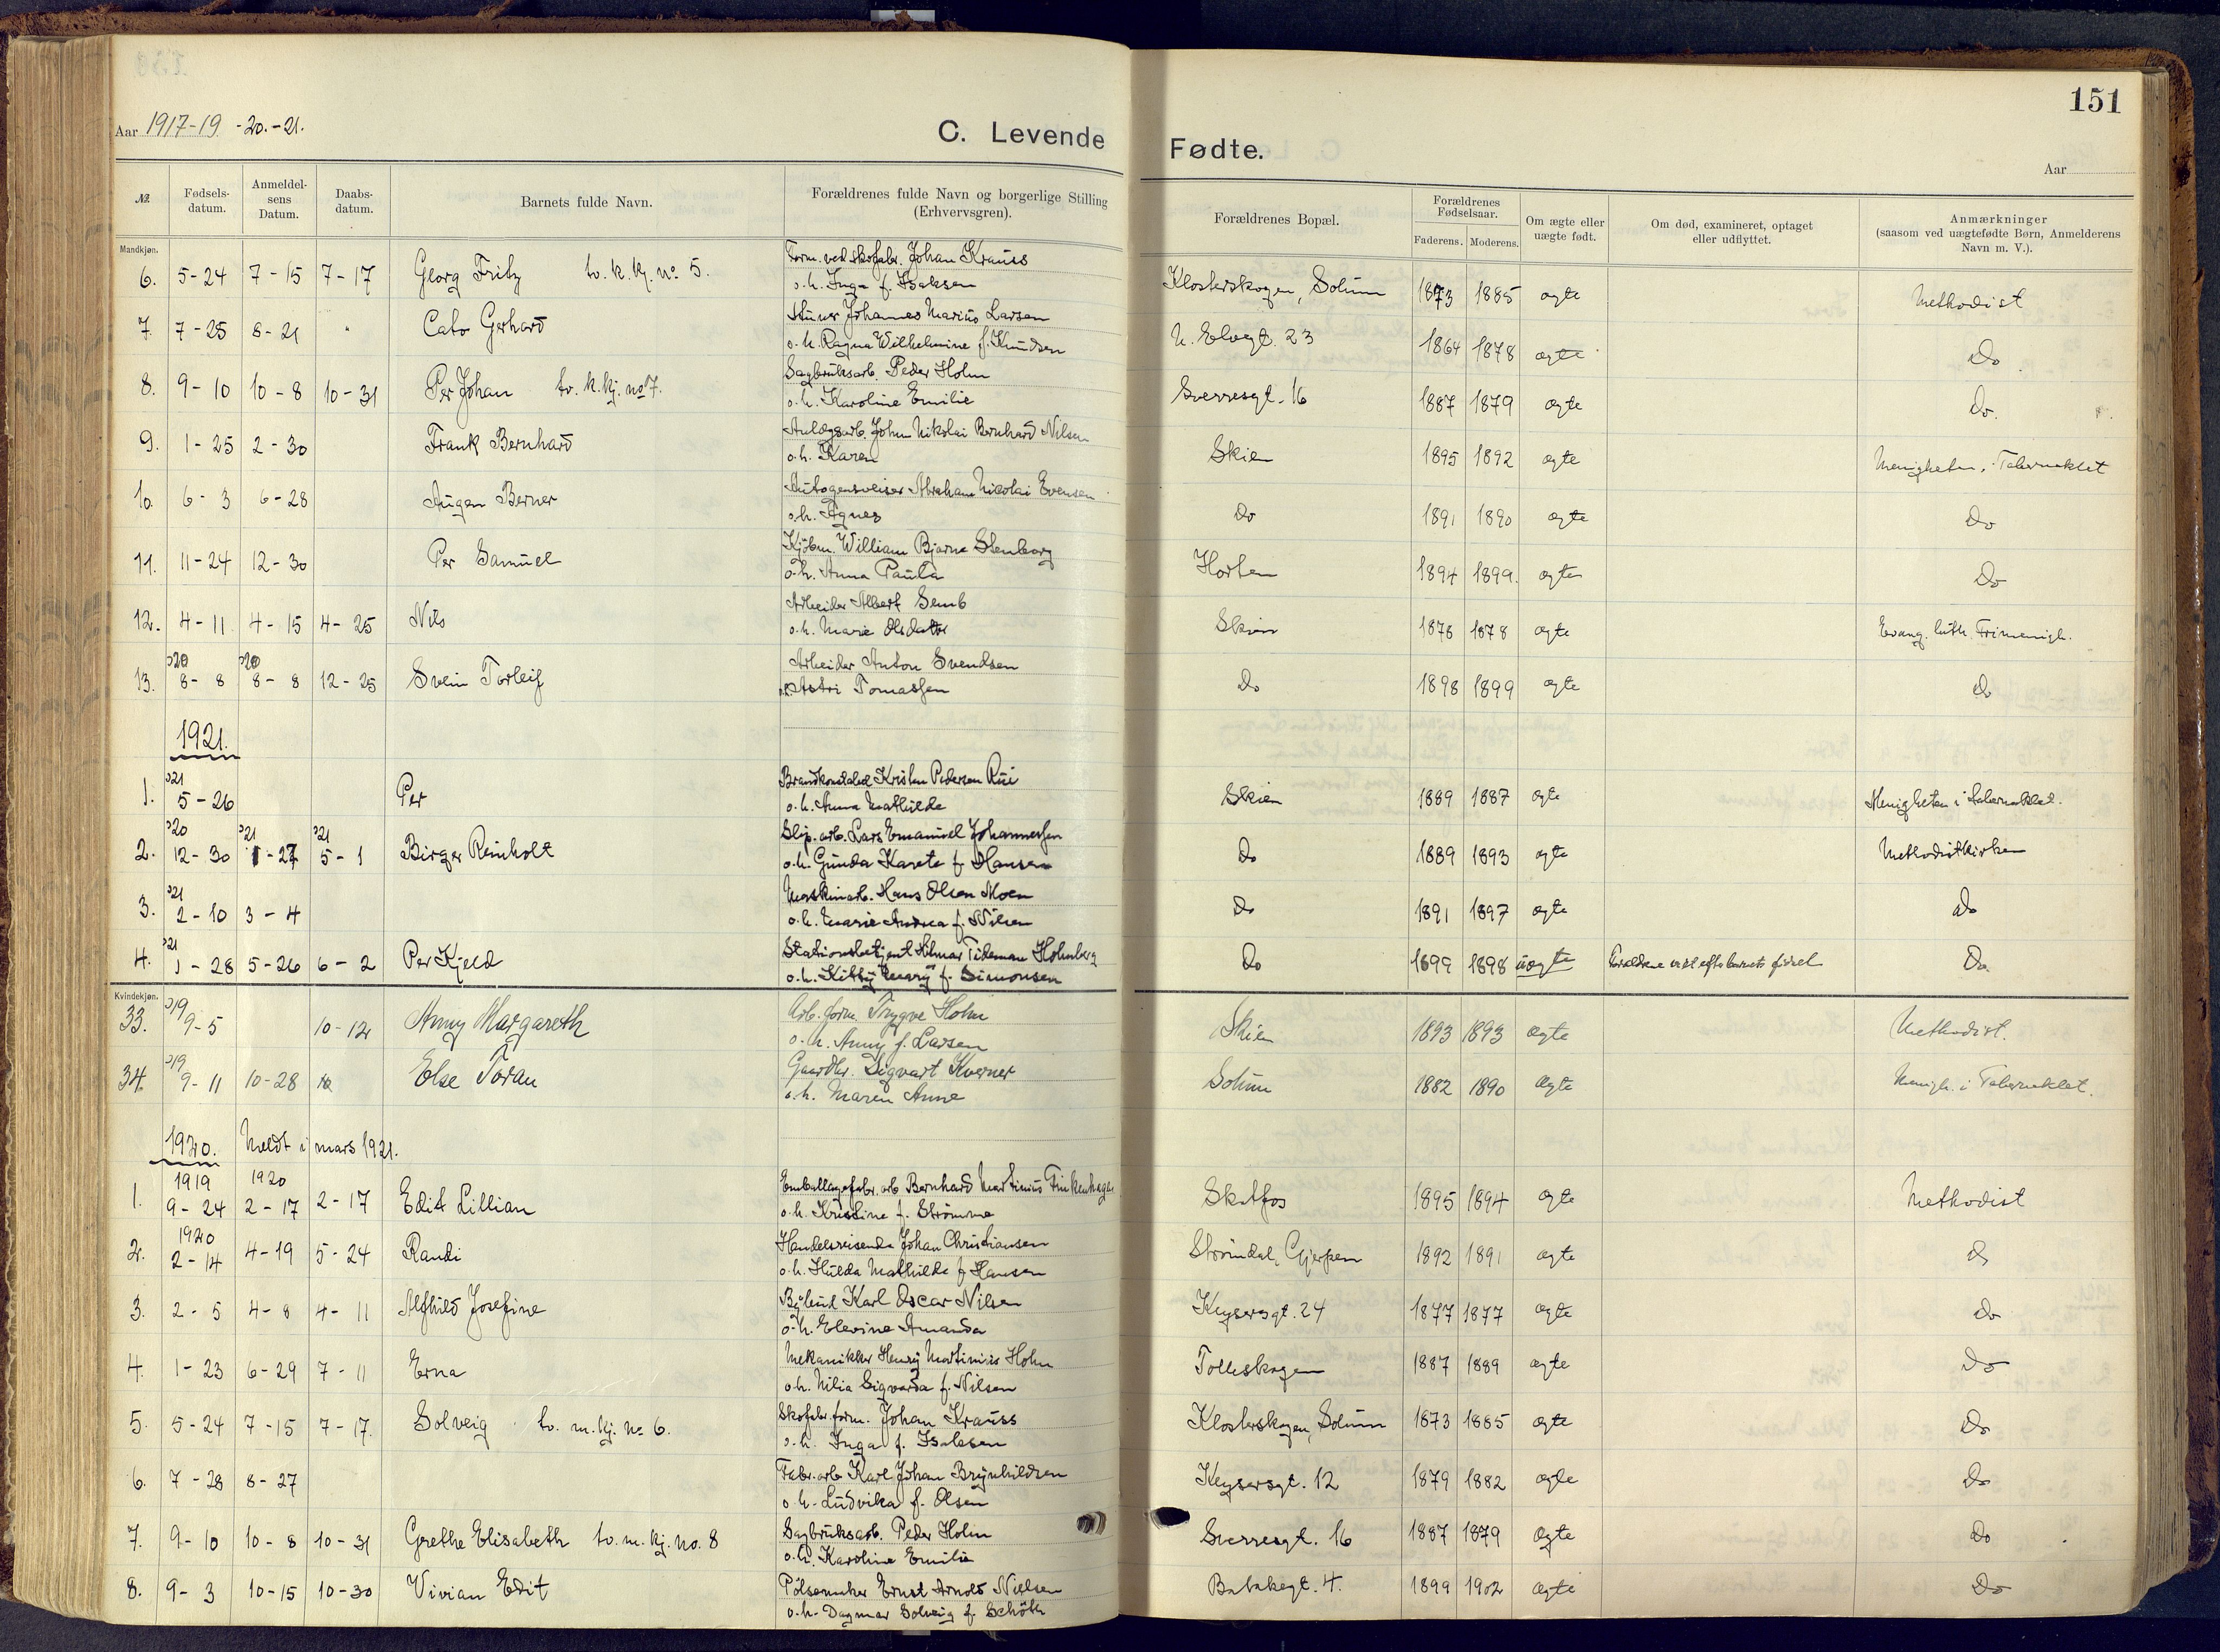 151
Aar 1917-19-20.-21.
C. Levende Fødte.
Aar
№
Fødsels-datum.
Anmeldel-sens Datum.
Daabs-datum.
Barnets fulde Navn.
Forældrenes fulde Navn og borgerlige Stilling (Erhvervsgren).
Forældrenes Bopæl.
Forældrenes Fødselsaar.
Faderens. Moderens.
Om ægte eller uægte født.
Om død, examineret, optaget eller udflyttet.
Anmærkninger (saasom ved uægtefødte Børn, Anmelderens Navn m. V.).
Mandkjøn.
6. 5-24 7-15 7-17 Georg Fritz tv. k. kj. no. 5. Form. ved skofabr. Johan Krauss Klosterskogen, Solum 1873 1885 ægte Methodist
o. h. Inga f. Isaksen
7. 7-25 8-21 " Cato Gerhard Stuer Johannes Marius Larsen N. Elvegt. 23 1864 1878 ægte Do
o. h. Ragna Wilhelmine f. Knudsen
8. 9-10 10-8 10-31 Per Johan tv. k. kj. no 7. Sagbruksarb. Peder Holm Sverresgt. 16 1887 1879 ægte Do.
o. h. Karoline Emilie
9. 1-25 2-30 Frank Bernhard Anlægsarb. John Nikolai Bernhard Nilsen Skien 1895 1892 ægte Menigheten i Tabernaklet
o. h. Karen
10. 6-3 6-28 Augen Berner Autogensveiser Abraham Nicolai Evensen Do 1891 1890 ægte Do
o. h. Agnes
11. 11-24 12-30 Per Samuel Kjøbm. William Bjarne Stenborg Horten 1894 1899. ægte Do
o. h. Anna Paula
12. 4-11 4-15 4-25 Nils Arbeider Albert Semb Skien 1878 1878 ægte Evang. luth. Frimenigh.
o. h. Marie Olsdatter
13. '20 8-8 '20 8-8 12-25 Svein Torleif Arbeider Anton Svendsen Do 1898 1899 ægte do
o. h. Astri Tomassen
1921.
1. '21 5-26 Per Brandkonstabel Kristen Pedersen Rui Skien 1889 1887 ægte Menigheten i Tabernaklet.
o. h. Anna Mathilde
2. '20 12-30 '21 1-27 '21 5-1 Birger Reinholt Slip. arb. Lars Emanuel Johannessen Do 1889 1893 ægte Methodistkirken
o. h. Gunda Karete f. Hansen
3. '21 2-10 3-4 Maskinarb. Hans Olsen Moen Do 1891 1897 ægte do
o. h. Marie Andrea f. Nilsen
4. '21 1-28 5-26 6-2 Per Kjeld Stationsbetjent Hilmar Tideman Holmberg Do 1899 1898 uægte Forældrene viet efter barnets fødsel Do
o. h. Kitty Mary f. Simonsen
Kvindekjøn.
33. '19 9-5 10-12 Anny Margareth Arb. form. Trygve Holm Skien 1893 1893 ægte Methodist.
o. h. Anny f. Larsen
34. '19 9-11 10-28 Else Toran Gaardbr. Sigvart Kverner Solum 1882 1890 ægte Menigh. i Tabernaklet.
o. h. Maren Anne
1920. Meldt i mars 1921.
1. 1919 9-24 1920 2-17 2-17 Edit Lillian Emballagefabr. arb Bernhard Martinius Finkenhagen Skotfos 1895 1894 ægte Methodist
o. h. Kristine f. Strømme
2. 1920 2-14 4-19 5-24 Randi Handelsreisende Johan Christiansen Strømdal, Gjerpen 1892 1891 ægte do
o. h. Hulda Mathilde f. Hansen
3. 2-5 4-8 4-11 Alfhild Josefine Bybud Karl Oscar Nilsen Keysersgt. 24 1877 1877 ægte do
o. h. Elevine Amanda
4. 1-23 6-29 7-11 Erna Mekanikker Henry Martinius Holm Tollnskogen 1887 1889 ægte Do
o. h. Milia Sigvarda f. Nilsen
5. 5-24 7-15 7-17. Solveig tv. m. kj. no 6. Skofabr. form. Johan Krauss Klosterskogen, Solum 1873 1885 ægte Do
o. h. Inga f. Isaksen
6. 7-28 8-27 Fabr. arb Karl Johan Brynhildsen Keysersgt. 12 1879 1882 ægte Do
o. h. Ludvika f. Olsen
7. 9-10 10-8 10-31 Grethe Elisabeth tv. m. kj. no. 8 Sagbruksarb. Peder Holm Sverresgt. 16 1887 1879 ægte Do
o. h. Karoline Emilie
8. 9-3 10-15 10-30 Vivian Edit Pølsemaker Ernst Arnold Nielsen Bakkegt. 4. 1899 1902 ægte Do
o. h. Dagmar Solveig f. Schøth